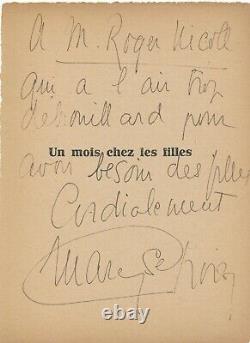 A M. Roger Nicoll
qui a l'air trop
débrouillard pour
Un mois chez les filles
avoir besoin des filles
Cordialement
Maryse Choisy
ebay